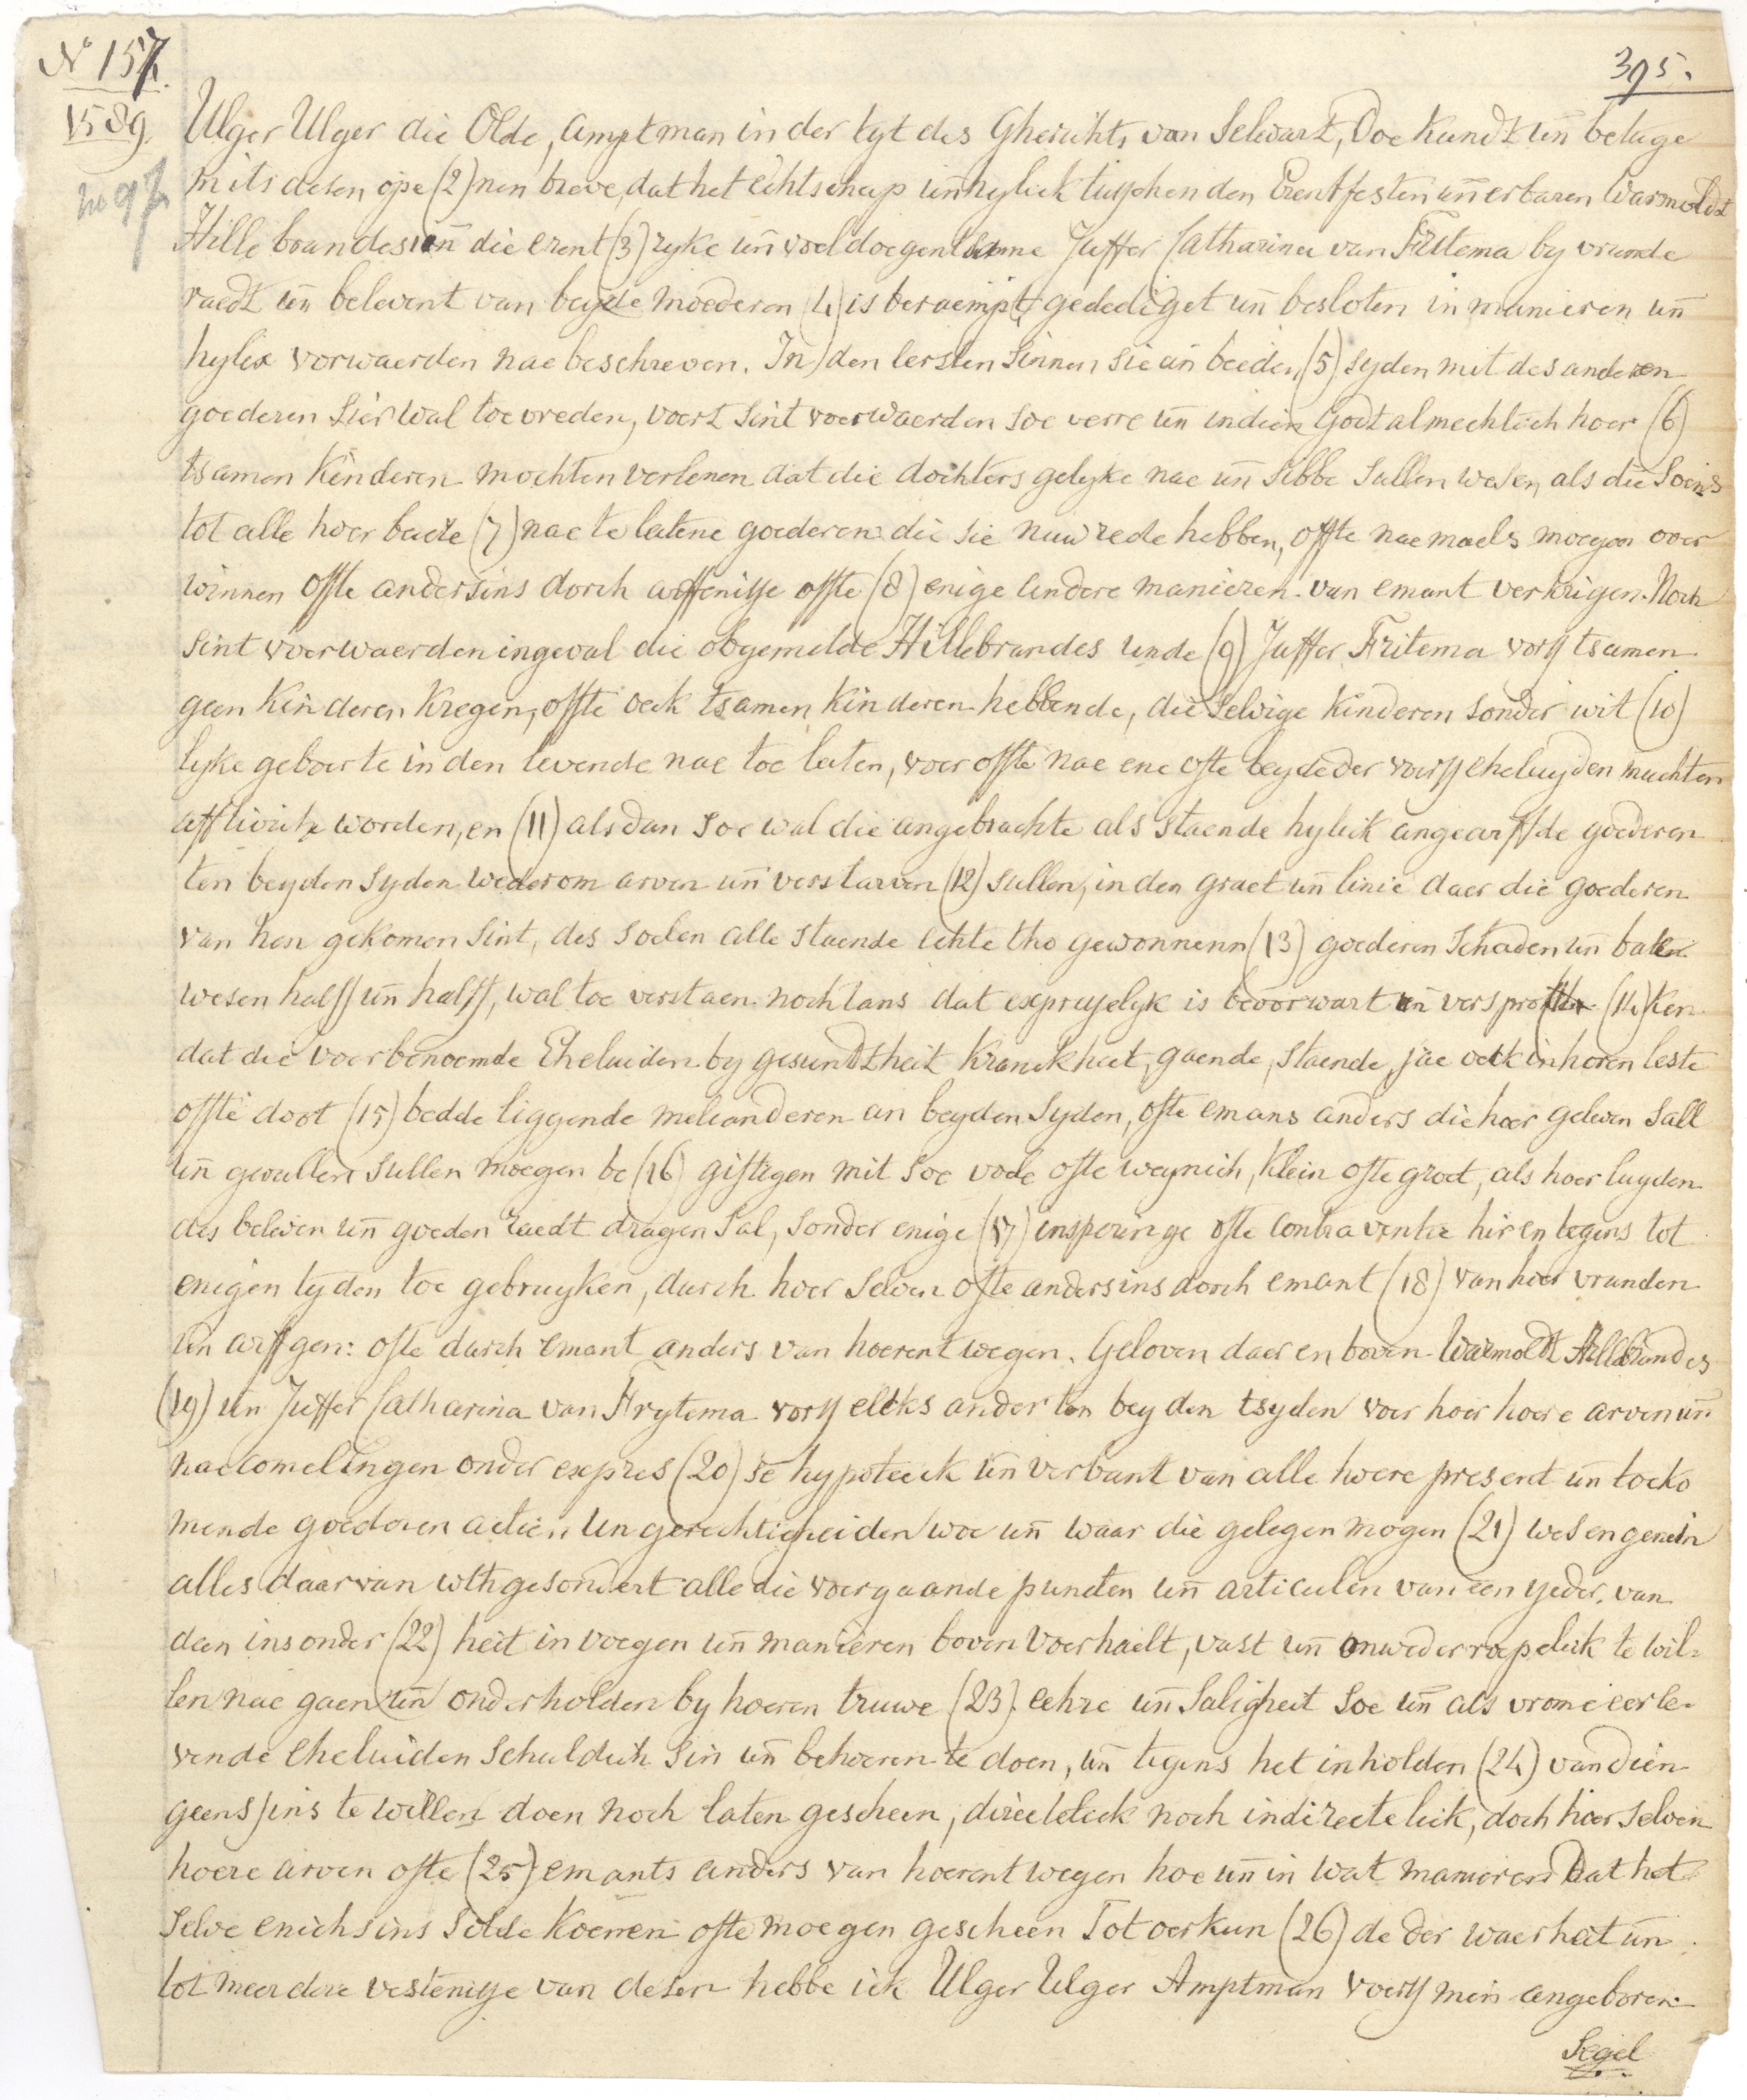 N° 157.
395.
1589.
no 97
Ulger Ulger die Olde, Amptman in der tyt des Gherichts van Selwart, Doe kundt un̄ betuge
mits desen ope (2) nen breve, dat het echtschap un̄ hylick tusschen den Erentfesten un̄ erbaren Warmoldt
Hillebrandes un̄ die erent (3) ryke un̄ voel doegentsame Juffer Catharina van Fritema by vrunde
raedt un̄ belevent van beyde moederen (4) is beraempt, gedediget un̄ besloten in manieren un̄
hylix vorwaerden nae beschreven. In den Iersten Sinnen sie an beeiden (5) syden mit des anderen
goederen sier wal toe vreden, voert Sint voerwaerden soe verre un̄ indien Godt almechtich hoer (6)
tsamen Kinderen mochten verlenen dat die dochters gelyke nae un̄ Sibbe Sullen wesen als die Soens
tot alle hoer beide (7) nae te latene goederen die sie nuw rede hebben, offte naemaels moegen over
winnen offte andersins dorch arffenisse offte (8) enige andere manieren van emant verkrigen. Noch
Sint voerwaerden ingeval die obgemelde Hillebrandes unde (9) Juffer Fritema vorss tsamen
geen Kinderen Kregen, offte oeck tsamen kinderen hebbende, die Selvige Kinderen sonder wit (10)
lyke geboerte in den levende nae toe laten, voer offte nae ene ofte beyde der voerss eheluyden muchten
afflivich worden, en (11) alsdan soe wal die angebrachte als staende hylick angearffde goederen
ten beyden Syden wederom arven un̄ verstarven (12) sullen, in den graet un̄ linie daer die goederen
van hen gekomen Sint, des soelen alle staende echte tho gewonnenn (13) goederen Schaden un̄ baten
wesen halff un̄ halff, wal toe verstaen nochtans dat expresselyk is bevoorwart un̄ verspro (14) ken
dat die voerbenoemde Eheluiden by gesundtheit Kranckheit, gaende, staende, jae oeck in horen leste
offte doot (15) bedde liggende melcanderen an beyden Syden, ofte emans anders die hoer geleven Sall
un̄ gevallen sullen moegen be (16) giftigen mit soe voele ofte weynich, Klein ofte groet, als hoer luyden
des beleven un̄ goeden raedt dragen Sal, sonder enige (17) insperinge ofte Contraventie hir en tegens tot
enigen tyden toe gebruyken, durch hoer Selven ofte andersins dorch emant (18) van hoer vrunden
un̄ arffgen: ofte durch emant anders van hoerent wegen. Geloven daer en boven Warmoldt Hillebrandes
(19) un̄ Juffer Catharina van Frytema vorss elcks ander ten beyden tsyden voer hoer hoere arven un̄
nacomelingen onder expres (20) se hypoteeck un̄ verbant van alle hoere present un̄ toeko
mende goederen actien un gerechticheiden woe un̄ waar die gelegen mogen (21) wesen genein
alles daarvan wthgesondert alle die voergaande puncten un̄ articulen van een yeder, van
den insonder (22) heit in voegen un̄ manieren boven voerhaelt, vast un̄ onwederroepelick te wil-
len nae gaen un̄ onderholden by hoeren truwe (23) eehre un̄ Saligheit Soe un̄ als vrome eerle-
vende eheluiden Schuldich Sin un̄ behoeren te doen, un̄ tegens het inholden (24) van dien
geenssins te willen doen noch laten gescheen, directelick noch indirectelick, doch hoer Selven
hoere arven ofte (25) emants anders van hoerent wegen hoe un̄ in wat manieren dat het
Selve enichsins Solde Koenen ofte moegen gescheen Tot oerkun (26) de der waerheit un̄
tot meerdere vestenisse van desen hebbe ick Ulger Ulger Amptman voerss mein angeboren
Segel